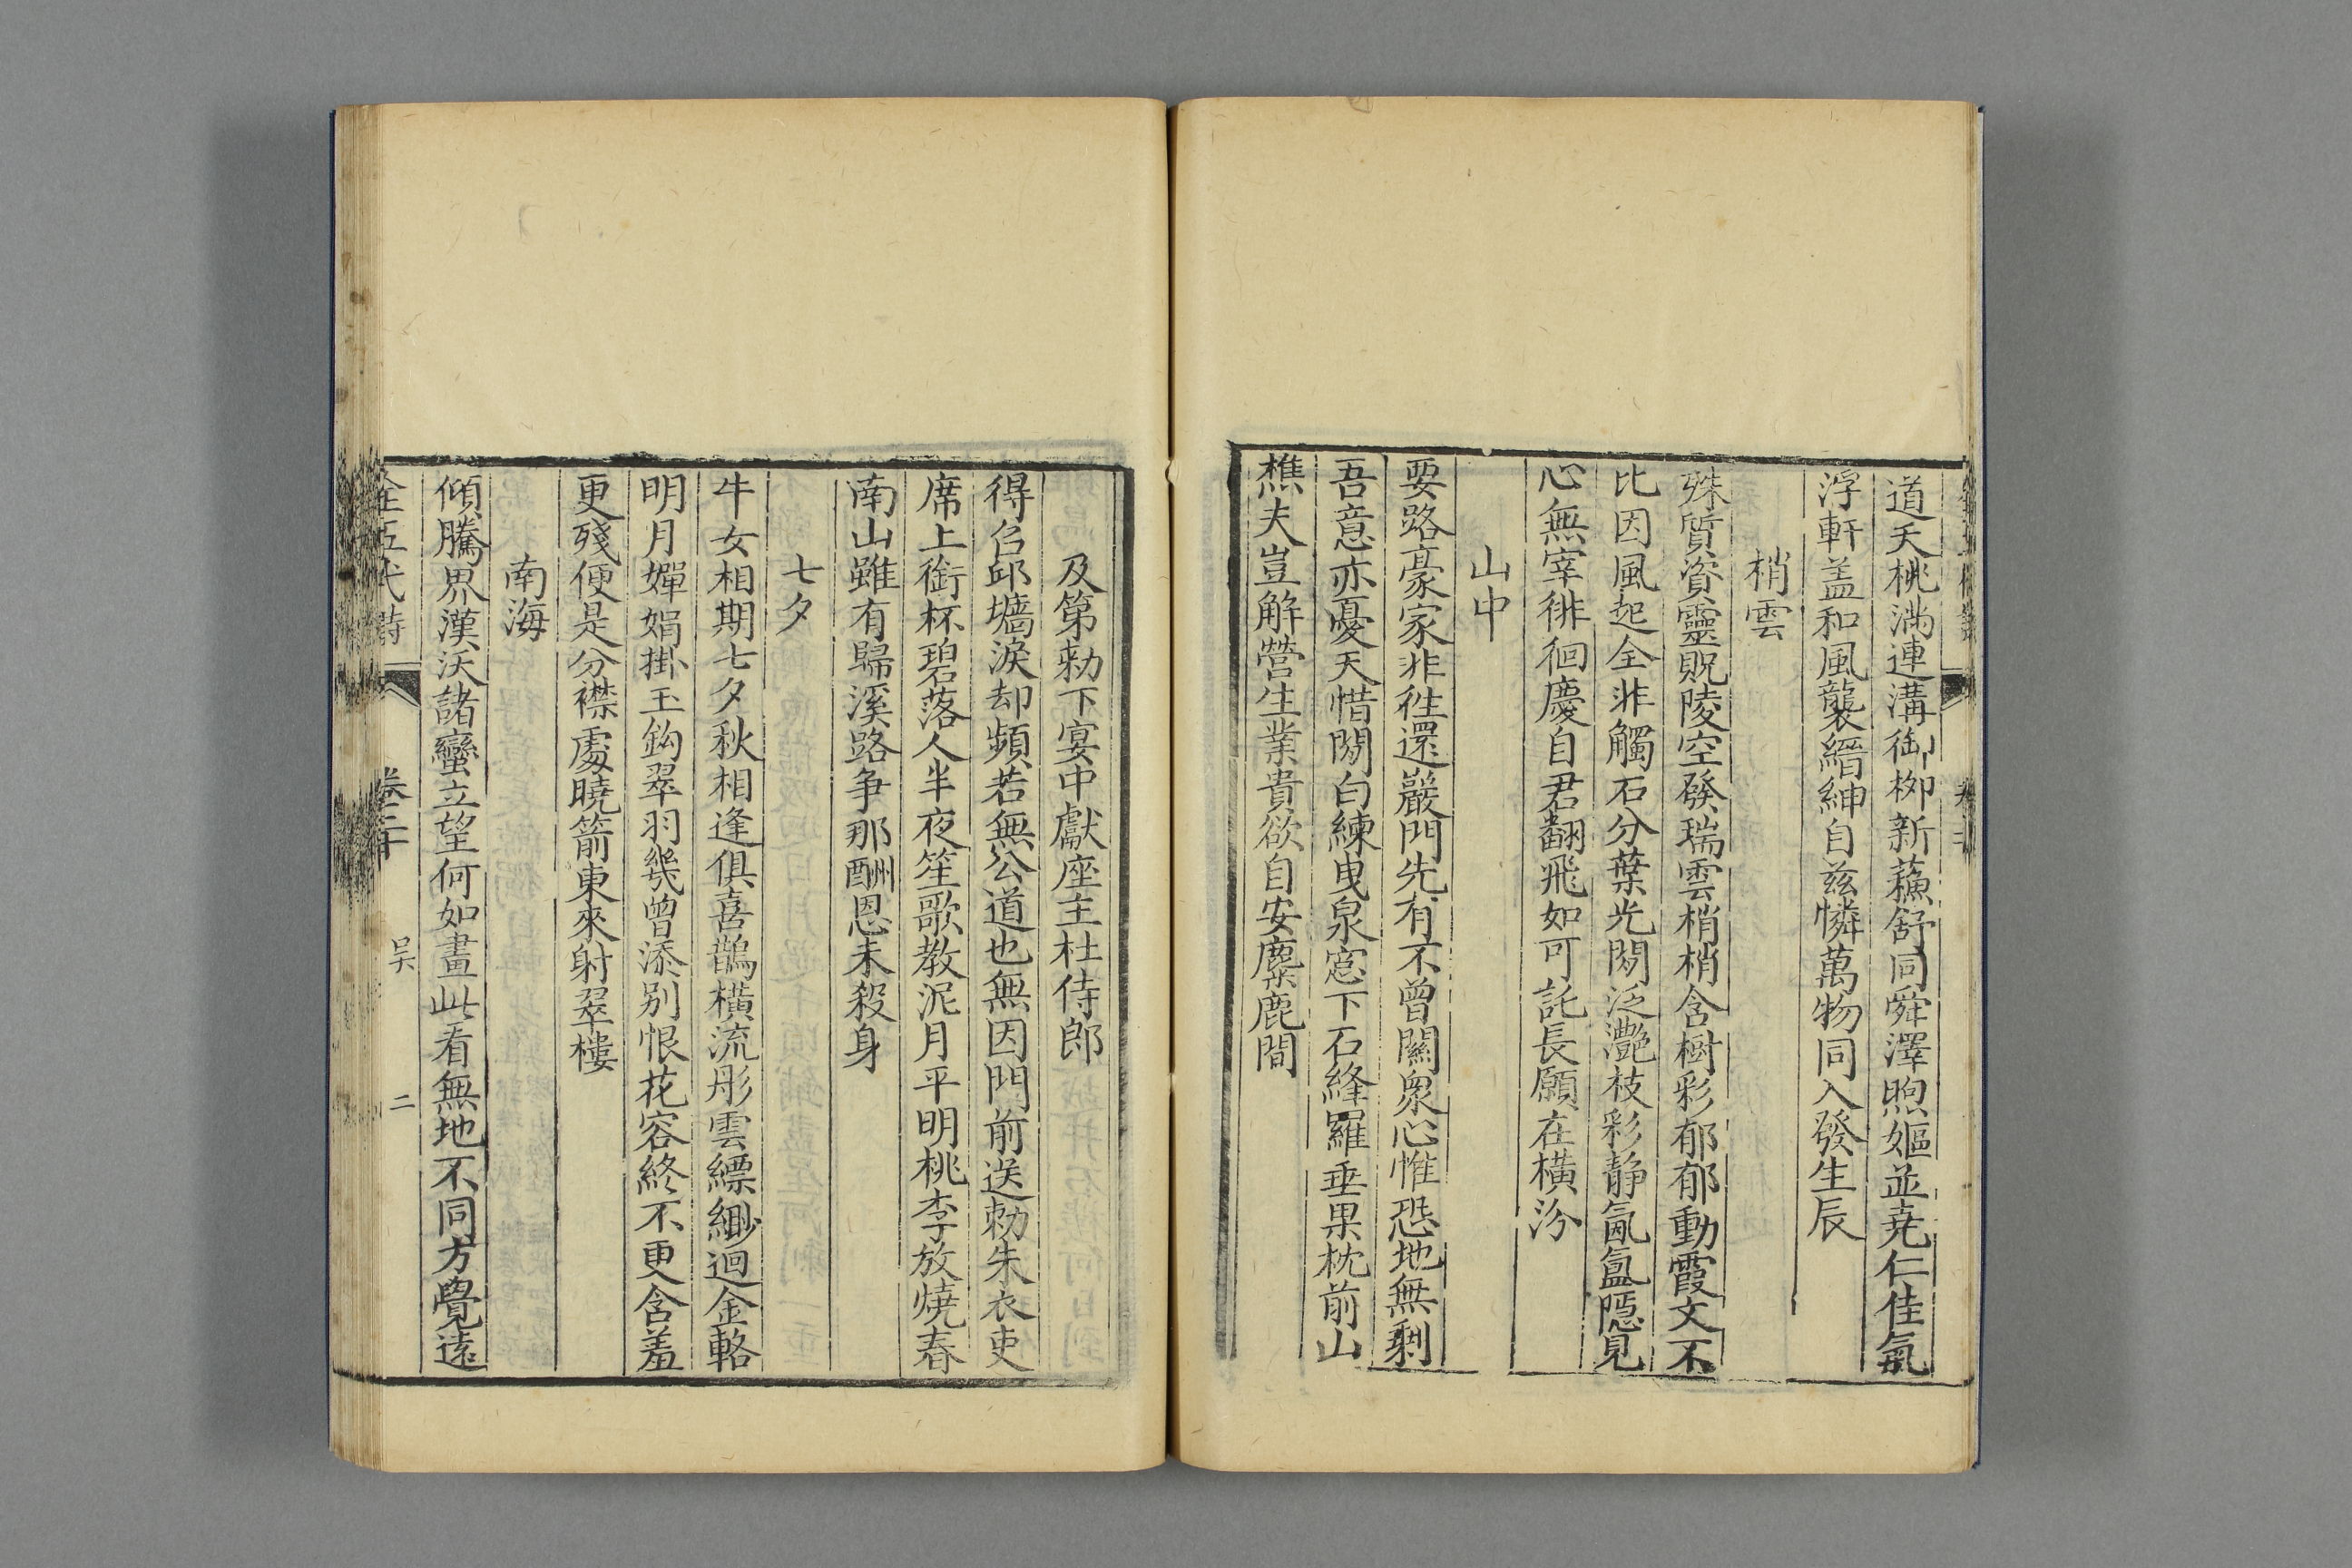 道夭桃滿連溝御栁新蘓舒同舜澤煦嫗並尭仁佳氣
浮軒盖和風襲縉紳自兹憐萬物同入發生辰
梢雲
殊質資靈貺陵空發瑞雲梢梢含樹彩郁郁動霞文不
比因風起全非觸石分葉光閒泛灔枝彩静氤氲隠見
心無宰徘徊慶自君翻飛如可託長願在橫汾
山中
要路豪家非徃還巖門先有不曾關衆心惟恐地無剰
吾意亦憂天惜閒白練曳泉窓下石絳羅垂果枕前山
樵夫豈解營生業貴欲自安麋鹿間
及第勑下宴中獻座主杜侍郎
得召邱墻淚却頻若無公道也無因門前送勑朱衣吏
席上銜杯碧落人半夜笙歌教泥月平明桃李放燒春
南山雖有歸溪路争那酬恩未殺身
七夕
牛女相期七夕秋相逢俱喜鵲橫流彤雲縹緲迴金輅
明月嬋娟掛玉鈎翠羽幾曾添别恨花容終不更含羞
更殘便是分襟處曉箭東來射翠樓
南海
傾騰界漢沃諸蠻立望何如畫此看無地不同方覺遠
全五代詩 卷二十 吳 二